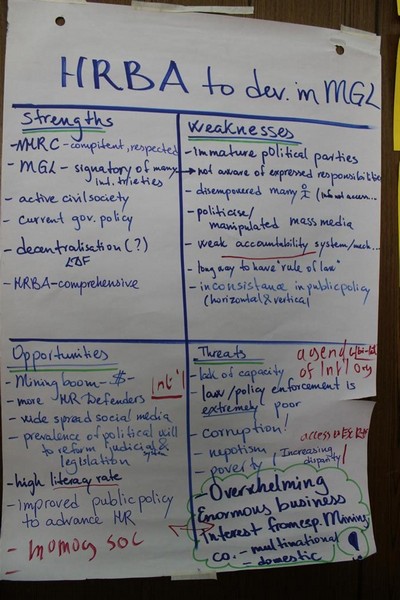 HRBA to dev. in MGL
Strengths
- NHRC - compitent, respected
- MGL - signatory of many
int. trieties
- active civil society
- current gov. policy
- decentralisation (?)
LDF
- HRBA - comprehensive
Weaknesses
- immature political parties
→ not aware of expressed responsibilities
- disempowered many
- politicise/
manipulated mass media
- weak accountability system/mech...
- long way to have "rule of law"
- inconsistance in public policy
(horizontal & vertical
Opportunities
- Mining boom - $ -
- more HR Defenders
Int'l
- wide spread social media
- prevalence of political will
to reform judicial &
legislation system
- high literacy rate
- improved public policy
to advance HR
- SOC
Threats
agend
of Int'l Org
- lack of capacity
- law/policy enforcement is
extremely poor
- corruption!
- nepotism
- poverty (Increasing
disparity)
access
- Overwhelming
Enormous business
Interest from Mining
co. - multinational
- domestic